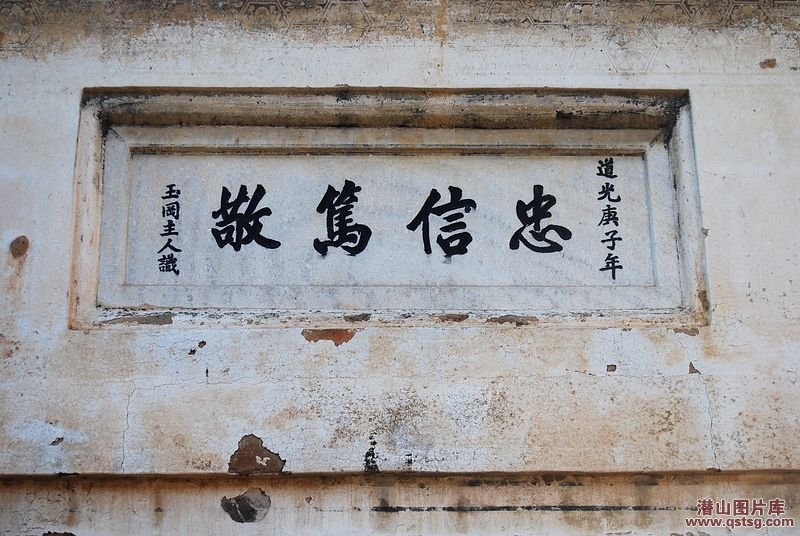 道光庚子年
忠信篤敬
玉岡主人識
潜山图片库
www.qstsg.com